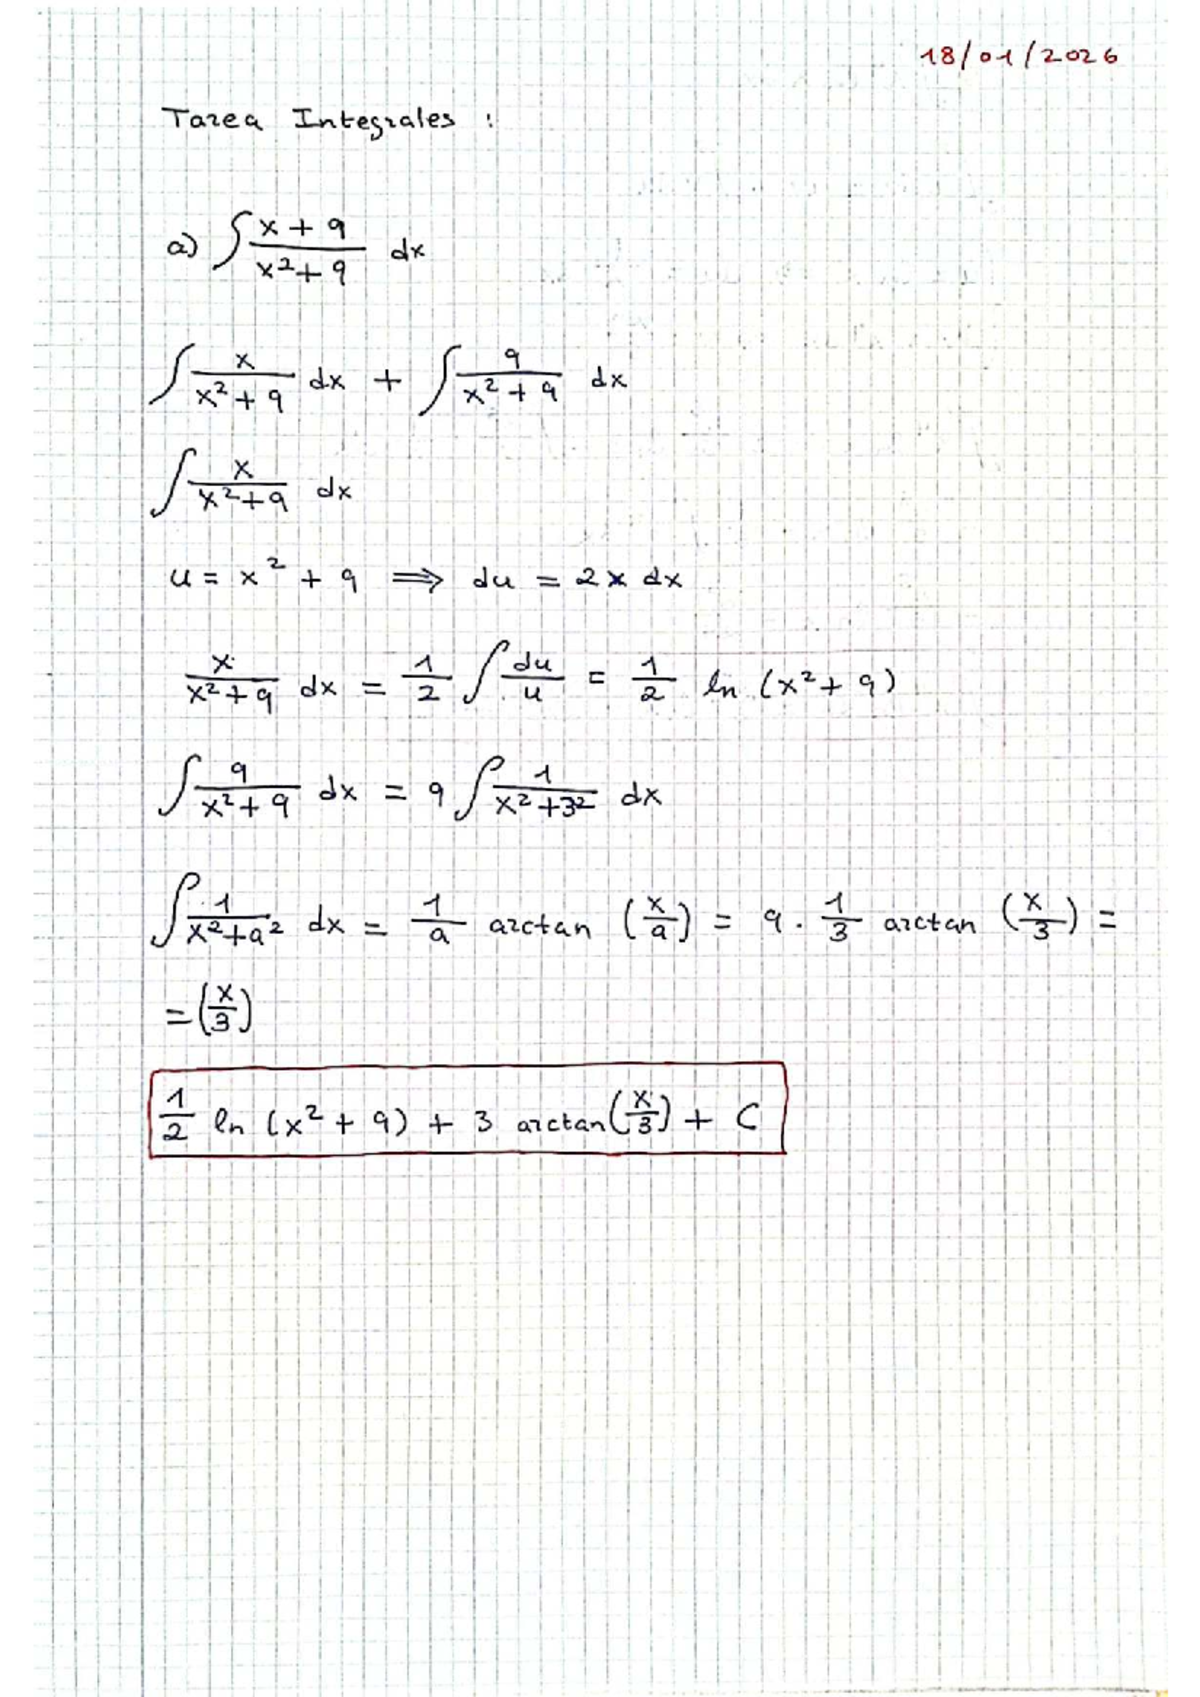 18/01/2026
Tarea Integrales :
a) ∫ (x + 9)/(x² + 9) dx
∫ x/(x² + 9) dx + ∫ 9/(x² + 9) dx
∫ x/(x² + 9) dx
u = x² + 9 ⟹ du = 2x dx
x/(x² + 9) dx = 1/2 ∫ du/u = 1/2 ln (x² + 9)
∫ 9/(x² + 9) dx = 9 ∫ 1/(x² + 3²) dx
∫ 1/(x² + a²) dx = 1/a arctan (x/a) = 9 · 1/3 arctan (x/3) =
= (x/3)
1/2 ln (x² + 9) + 3 arctan (x/3) + C